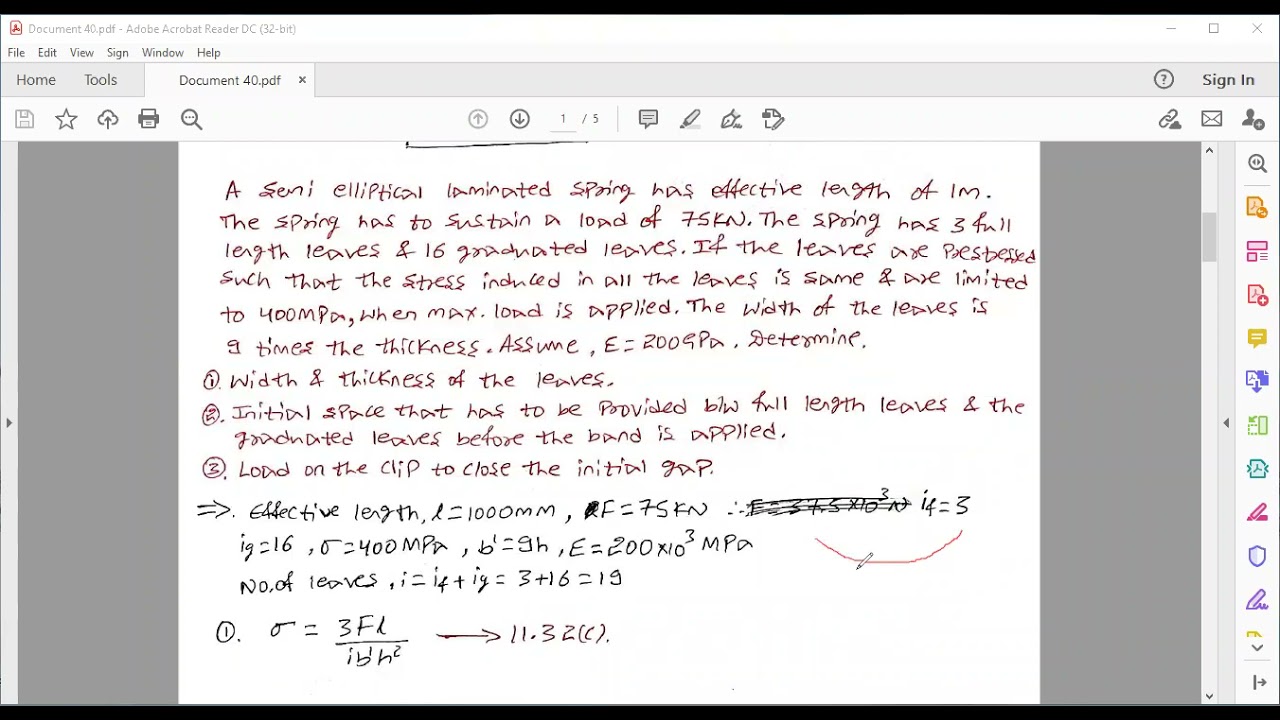 Document 40.pdf - Adobe Acrobat Reader DC (32-bit)
File Edit View Sign Window Help
Home Tools Document 40.pdf × Sign In
1 / 5
A semi elliptical laminated spring has effective length of 1m.
The spring has to sustain a load of 75KN. The spring has 3 full
length leaves & 16 graduated leaves. If the leaves are Prestressed
such that the stress induced in all the leaves is same & are limited
to 400MPa, when max. load is applied. The width of the leaves is
9 times the thickness. Assume, E=200GPa. Determine.
①. Width & thickness of the leaves.
②. Initial space that has to be Provided b/w full length leaves & the
graduated leaves before the band is applied.
③. Load on the clip to close the initial gap.
⇒. Effective length, l=1000mm, F=75KN ∴ F=37.5×10³N if=3
ig=16, σ=400MPa, b'=9h, E=200×10³ MPa
No. of leaves, i=if+ig=3+16=19
①. σ = 3Fl / ib'h² → 11.32(c).